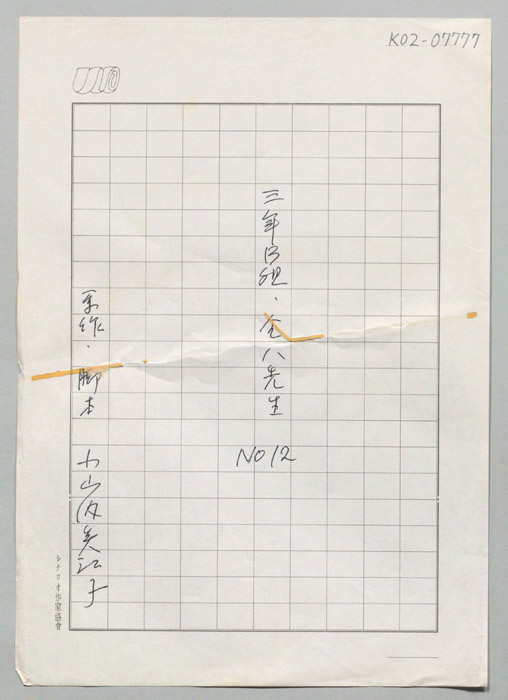 K02-07777
三年B組・金八先生
NO12
原作・脚本 小山内美江子
シナリオ作家協會